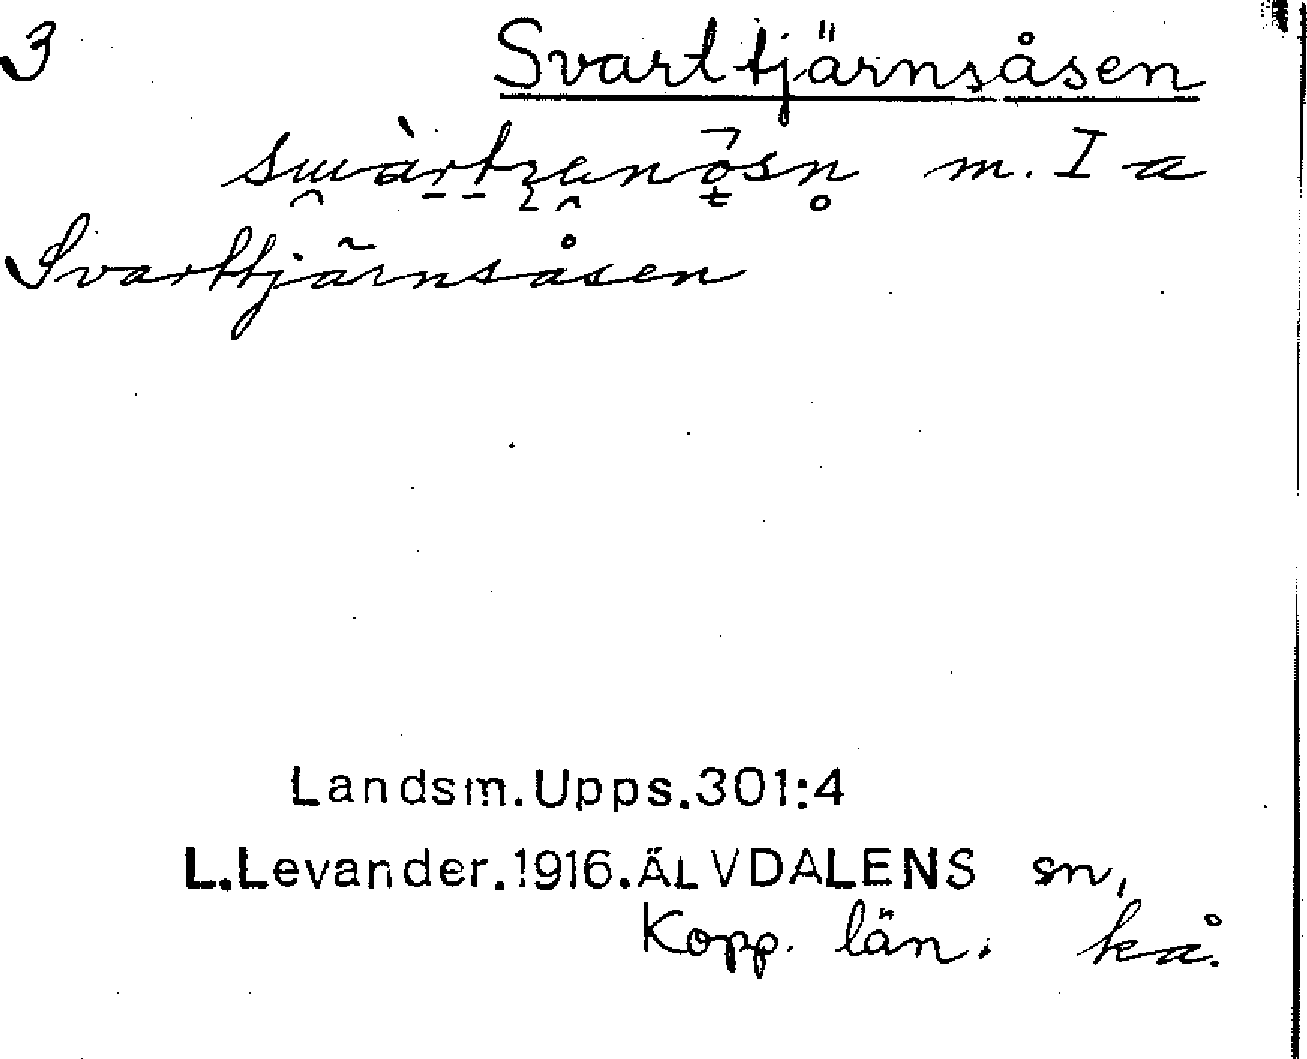 3 Svarttjärnsåsen
m. I a
Svarttjärnsåsen
Landsm.Upps.301:4
L.Levander.1916.ÄLVDALENS sn,
Kopp. län. kå.